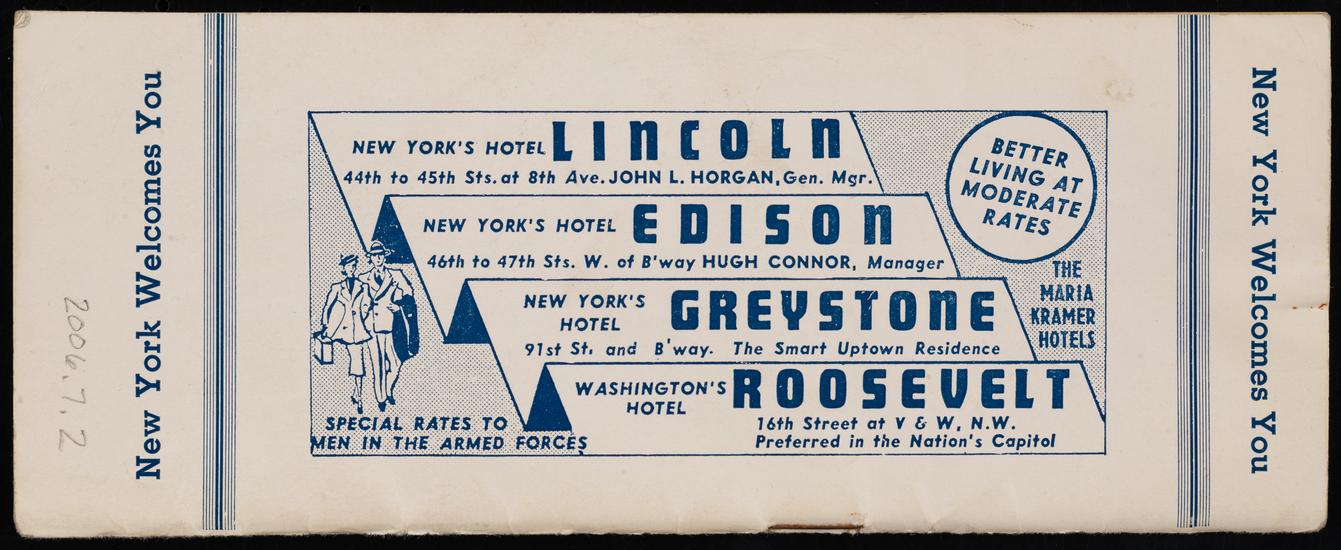 New York Welcomes You
2006.7.2
NEW YORK'S HOTEL LINCOLN
44th to 45th Sts. at 8th Ave. JOHN L. HORGAN, Gen. Mgr.
NEW YORK'S HOTEL EDISON
46th to 47th Sts. W. of B'way HUGH CONNOR, Manager
NEW YORK'S
HOTEL
GREYSTONE
91st St. and B'way. The Smart Uptown Residence
WASHINGTON'S
HOTEL
ROOSEVELT
16th Street at V & W, N.W.
Preferred in the Nation's Capitol
BETTER
LIVING AT
MODERATE
RATES
THE
MARIA
KRAMER
HOTELS
SPECIAL RATES TO
MEN IN THE ARMED FORCES
New York Welcomes You